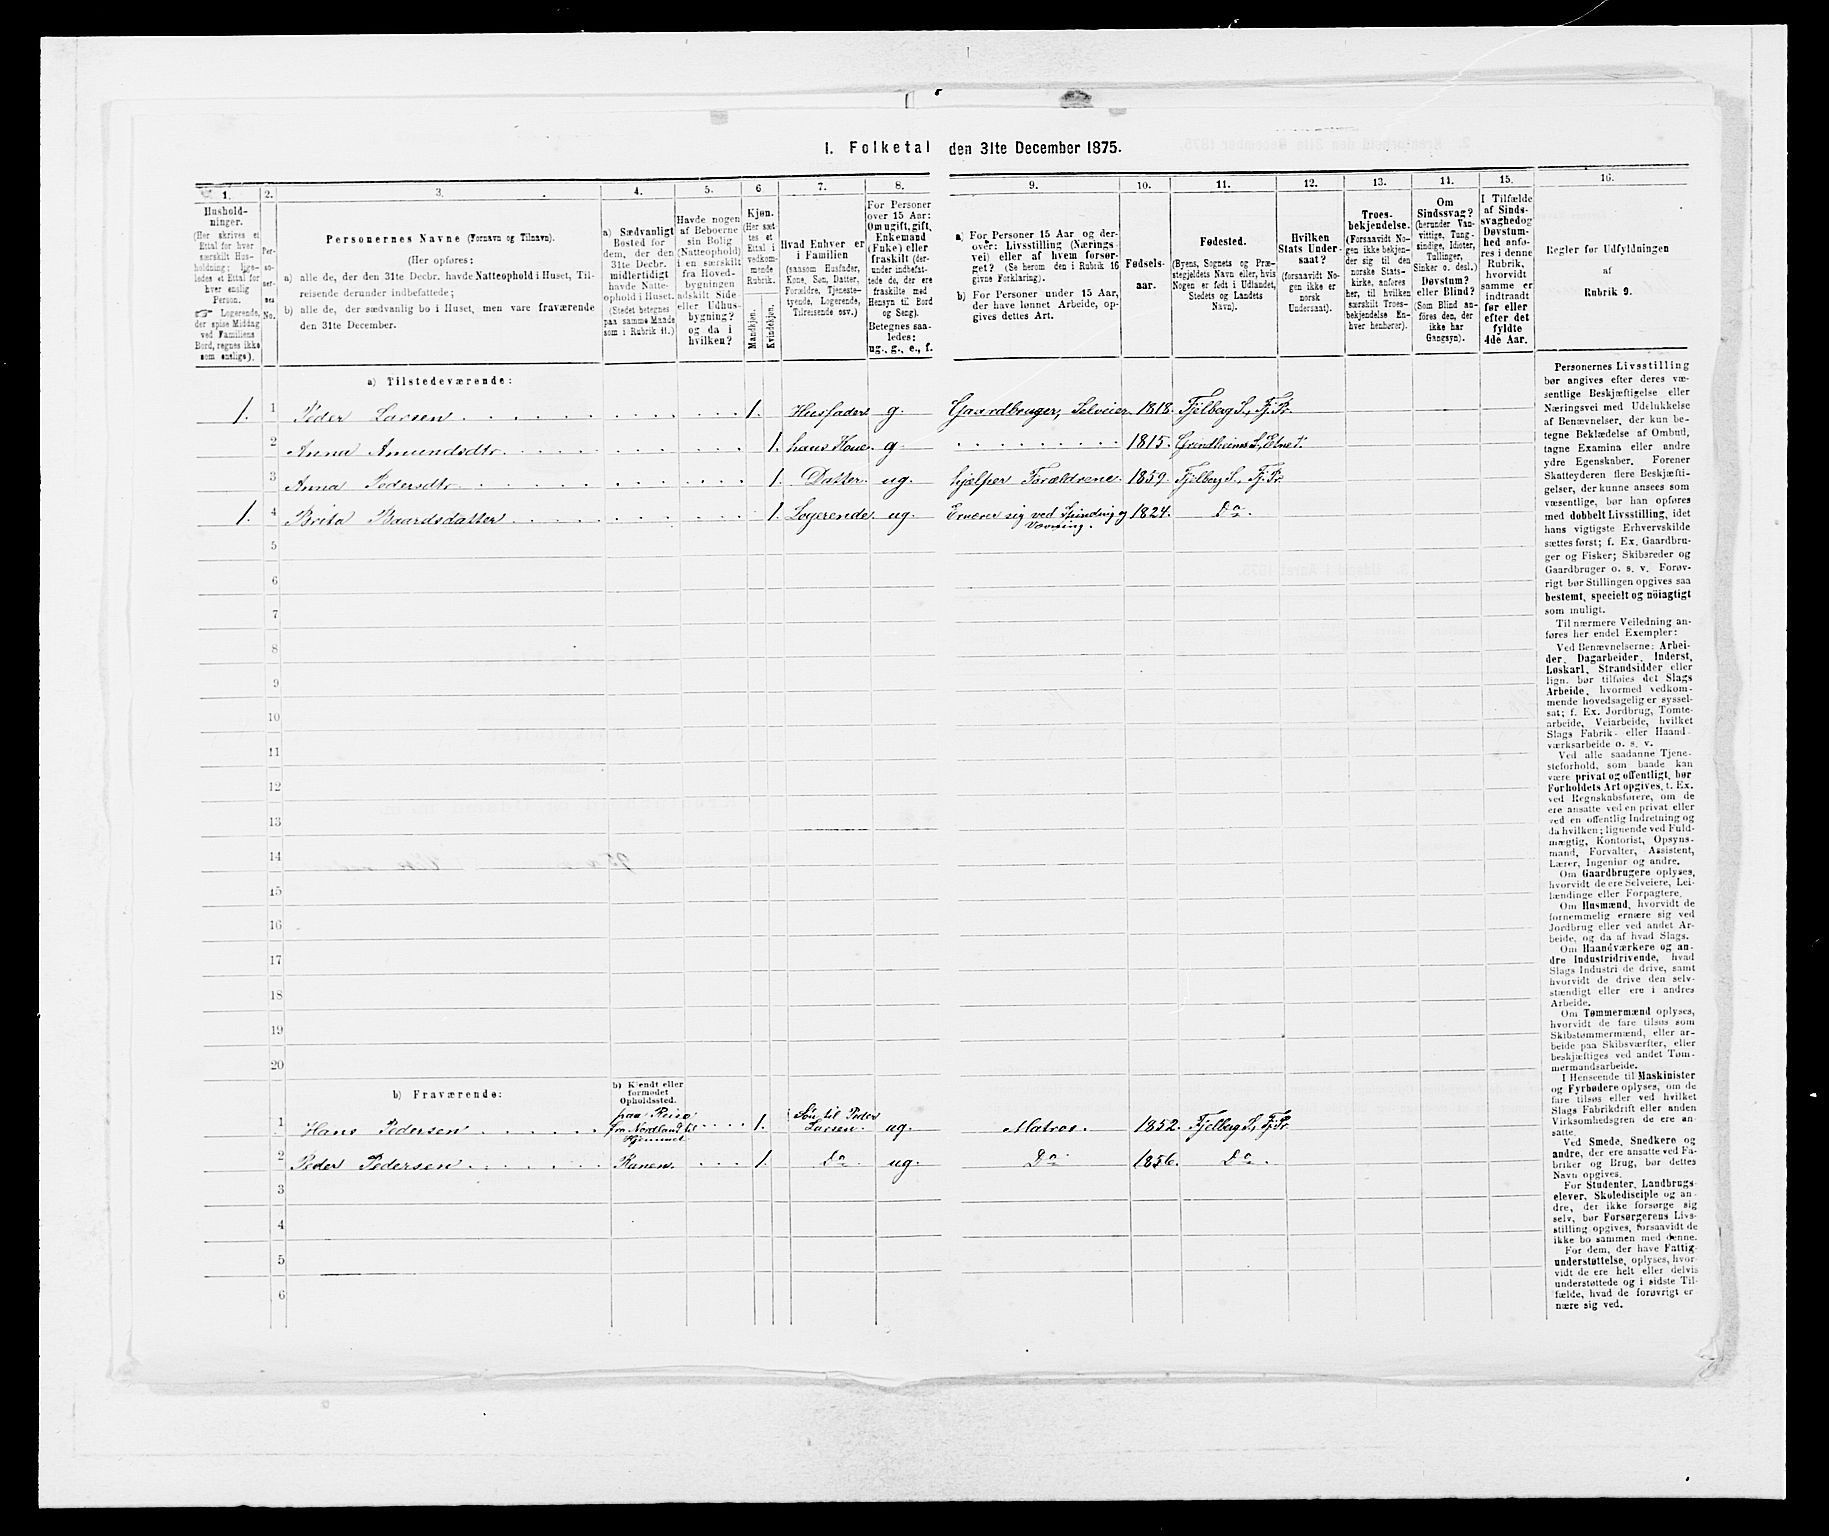 I. Folketal den 31te December 1875.
1. 2. 3. 4. 5. 6 7. 8. 9. 10. 11. 12. 13. 14. 15. 16.
Hushold-
ninger.
(Her skrives et
Ettal for hver
særskilt Hus-
holdning; lige-
ledes et Ettal for
hver enslig
Person.
☞ Logerende,
der spise Middag
ved Familiens
Bord, regnes ikke
som enslige).
Per-
so-
ner-
nes
No.
Personernes Navne (Fornavn og Tilnavn).
(Her opføres:
a) alle de, der den 31te Decbr. havde Natteophold i Huset, Til-
reisende derunder indbefattede;
b) alle de, der sædvanlig bo i Huset, men vare fraværende
den 31te December.
a) Sædvanligt
Bosted for
dem, der den
31te Decbr.
midlertidigt
havde Natte-
ophold i Huset.
(Stedet betegnes
paa samme Maade
som i Rubrik 11.)
Havde nogen
af Beboerne
sin Bolig
(Natteophold)
i en særskilt
fra Hoved-
bygningen
adskilt Side-
eller Udhus-
bygning?
og da i
hvilken?
Kjøn.
(Her sæt-
tes et
Ettal i
vedkom-
mende
Rubrik.
Mandkjøn.
Kvindekjøn.
Hvad Enhver er
i Familien
(saasom Husfader,
Kone, Søn, Datter,
Forældre, Tjeneste-
tyende, Logerende,
Tilreisende osv.)
For Personer
over 15 Aar:
Om ugift, gift,
Enkemand
(Enke) eller
fraskilt (der-
under indbefat-
tede de, der ere
fraskilte med
Hensyn til Bord
og Seng).
Betegnes saa-
ledes:
ug., g., e., f.
a) For Personer 15 Aar og der-
over: Livsstilling (Nærings-
vei) eller af hvem forsør-
get? (Se herom den i Rubrik 16
givne Forklaring).
b) For Personer under 15 Aar,
der have lønnet Arbeide, op-
gives dettes Art.
Fødsels-
aar.
Fødested.
(Byens, Sognets og Præ-
stegjeldets Navn eller, hvis
Nogen er født i Udlandet,
Stedets og Landets
Navn).
Hvilken
Stats Under-
saat?
(forsaavidt No-
gen ikke er
norsk
Undersaat).
Troes-
bekjendelse.
(Forsaavidt No-
gen ikke bekjen-
der sig til den
norske Stats-
kirke, anføres
her, til hvilken
særskilt Troes-
bekjendelse En-
hver henhører).
Om
Sindssvag?
(herunder Van-
vittige, Tung-
sindige, Idioter,
Tullinger,
Sinker o. desl.)
Døvstum?
eller Blind?
(Som Blind an-
føres den, der
ikke har
Gangsyn).
I Tilfælde
af Sinds-
svaghed og
Døvstum-
hed anfø-
res i denne
Rubrik,
hvorvidt
samme er
indtraadt
før eller
efter det
fyldte
4de Aar.
Regler før Udfyldningen
af
Rubrik 9.
a) Tilstedeværende:
1. 1 Peder Larsen 1. Husfader g. Gaardbruger, Selveier. 1818. Fjelberg S., Fj. Pr.
2 Anna Amundsdtr. 1. hans Kone. g. 1815. Grindheims S., Etne P.
3 Anna Pedersdtr. 1. Datter. ug. hjælper Forældrene. 1859. Fjelberg S., Fj. Pr.
1. 4 Brita Baardsdatter 1. Logerende ug. Ernærer sig ved Spinding og Vævning. 1824. Do.
5
6
7
8
9
10
11
12
13
14
15
16
17
18
19
20
b) Fraværende: b) Kjendt eller
formodet
Opholdssted.
1 Hans Pedersen paa Reise fra Nordland til Hjemmet 1. Søn til Peder Larsen. ug. Matros. 1852. Fjelberg S., Fj. Pr.
2 Peder Pedersen Ranen. 1. Do. ug. Do. 1856. Do.
3
4
5
6
Personernes Livsstilling
bør angives efter deres væ-
sentlige Beskjæftigelse eller
Næringsvei med Udelukkelse
af Benævnelser, der kun be-
tegne Beklædelse af Ombud,
tagne Examina eller andre
ydre Egenskaber. Forener
Skatteyderen flere Beskjæfti-
gelser, der kunne ansees som
væsentlige, bør han opføres
med dobbelt Livsstilling, idet
hans vigtigste Erhvervskilde
sættes først; f. Ex. Gaardbru-
ger og Fisker; Skibsreder og
Gaardbruger o. s. v. Forøv-
rigt bør Stillingen opgives saa
bestemt, specielt og nöiagtigt
som muligt.
Til nærmere Veiledning an-
føres her endel Exempler:
Ved Benævnelserne: Arbei-
der, Dagarbeider, Inderst,
Løskarl, Strandsidder eller
lign. bør tilføies det Slags
Arbeide, hvormed vedkom-
mende hovedsagelig er syssel-
sat; f. Ex. Jordbrug, Tomte-
arbeide, Veiarbeide, hvilket
Slags Fabrik- eller Haand-
værksarbeide o. s. v.
Ved alle saadanne Tjene-
steforhold, som baade kan
være privat og offentligt, bør
Forholdets Art opgives, t. Ex.
ved Regnskabsførere, om de
ere ansatte ved en privat eller
ved en offentlig Indretning og
da hvilken; lignende ved Fuld-
mægtig, Kontorist, Opsyns-
mand, Forvalter, Assistent,
Lærer, Ingeniør og andre.
Om Gaardbrugere oplyses,
hvorvidt de ere Selveiere, Lei-
lændinge eller Forpagtere.
Om Husmænd, hvorvidt de
fornemmelig ernære sig ved
Jordbrug eller ved andet Ar-
beide, og da af hvad Slags.
Om Haandværkere og an-
dre Industridrivende, hvad
Slags Industri de drive, samt
hvorvidt de drive den selv-
stændigt eller ere i andres
Arbeide.
Om Tømmermænd oplyses,
hvorvidt de fare tilsøs som
Skibstømmermænd, eller ar-
beide paa Skibsværfter, eller
beskjæftiges ved andet Tøm-
mermandsarbeide.
I Henseende til Maskinister
og Fyrbødere oplyses, om de
fare tilsøs eller ved hvilket
Slags Fabrikdrift eller anden
Virksomhedsgren de ere an-
satte.
Ved Smede, Snedkere og
andre, der ere ansatte ved Fa-
briker og Brug, bør dettes
Navn opgives.
For Studenter, Landbrugs-
elever, Skoledisciple og an-
dre, der ikke forsørge sig
selv, bør Forsørgerens Livs-
stilling opgives, forsaavidt de
ikke bo sammen med denne.
For dem, der have Fattig-
understøttelse, oplyses, hvor-
vidt de ere helt eller delvis
understøttede og i sidste Til-
fælde, hvad de forøvrigt er-
nære sig ved.